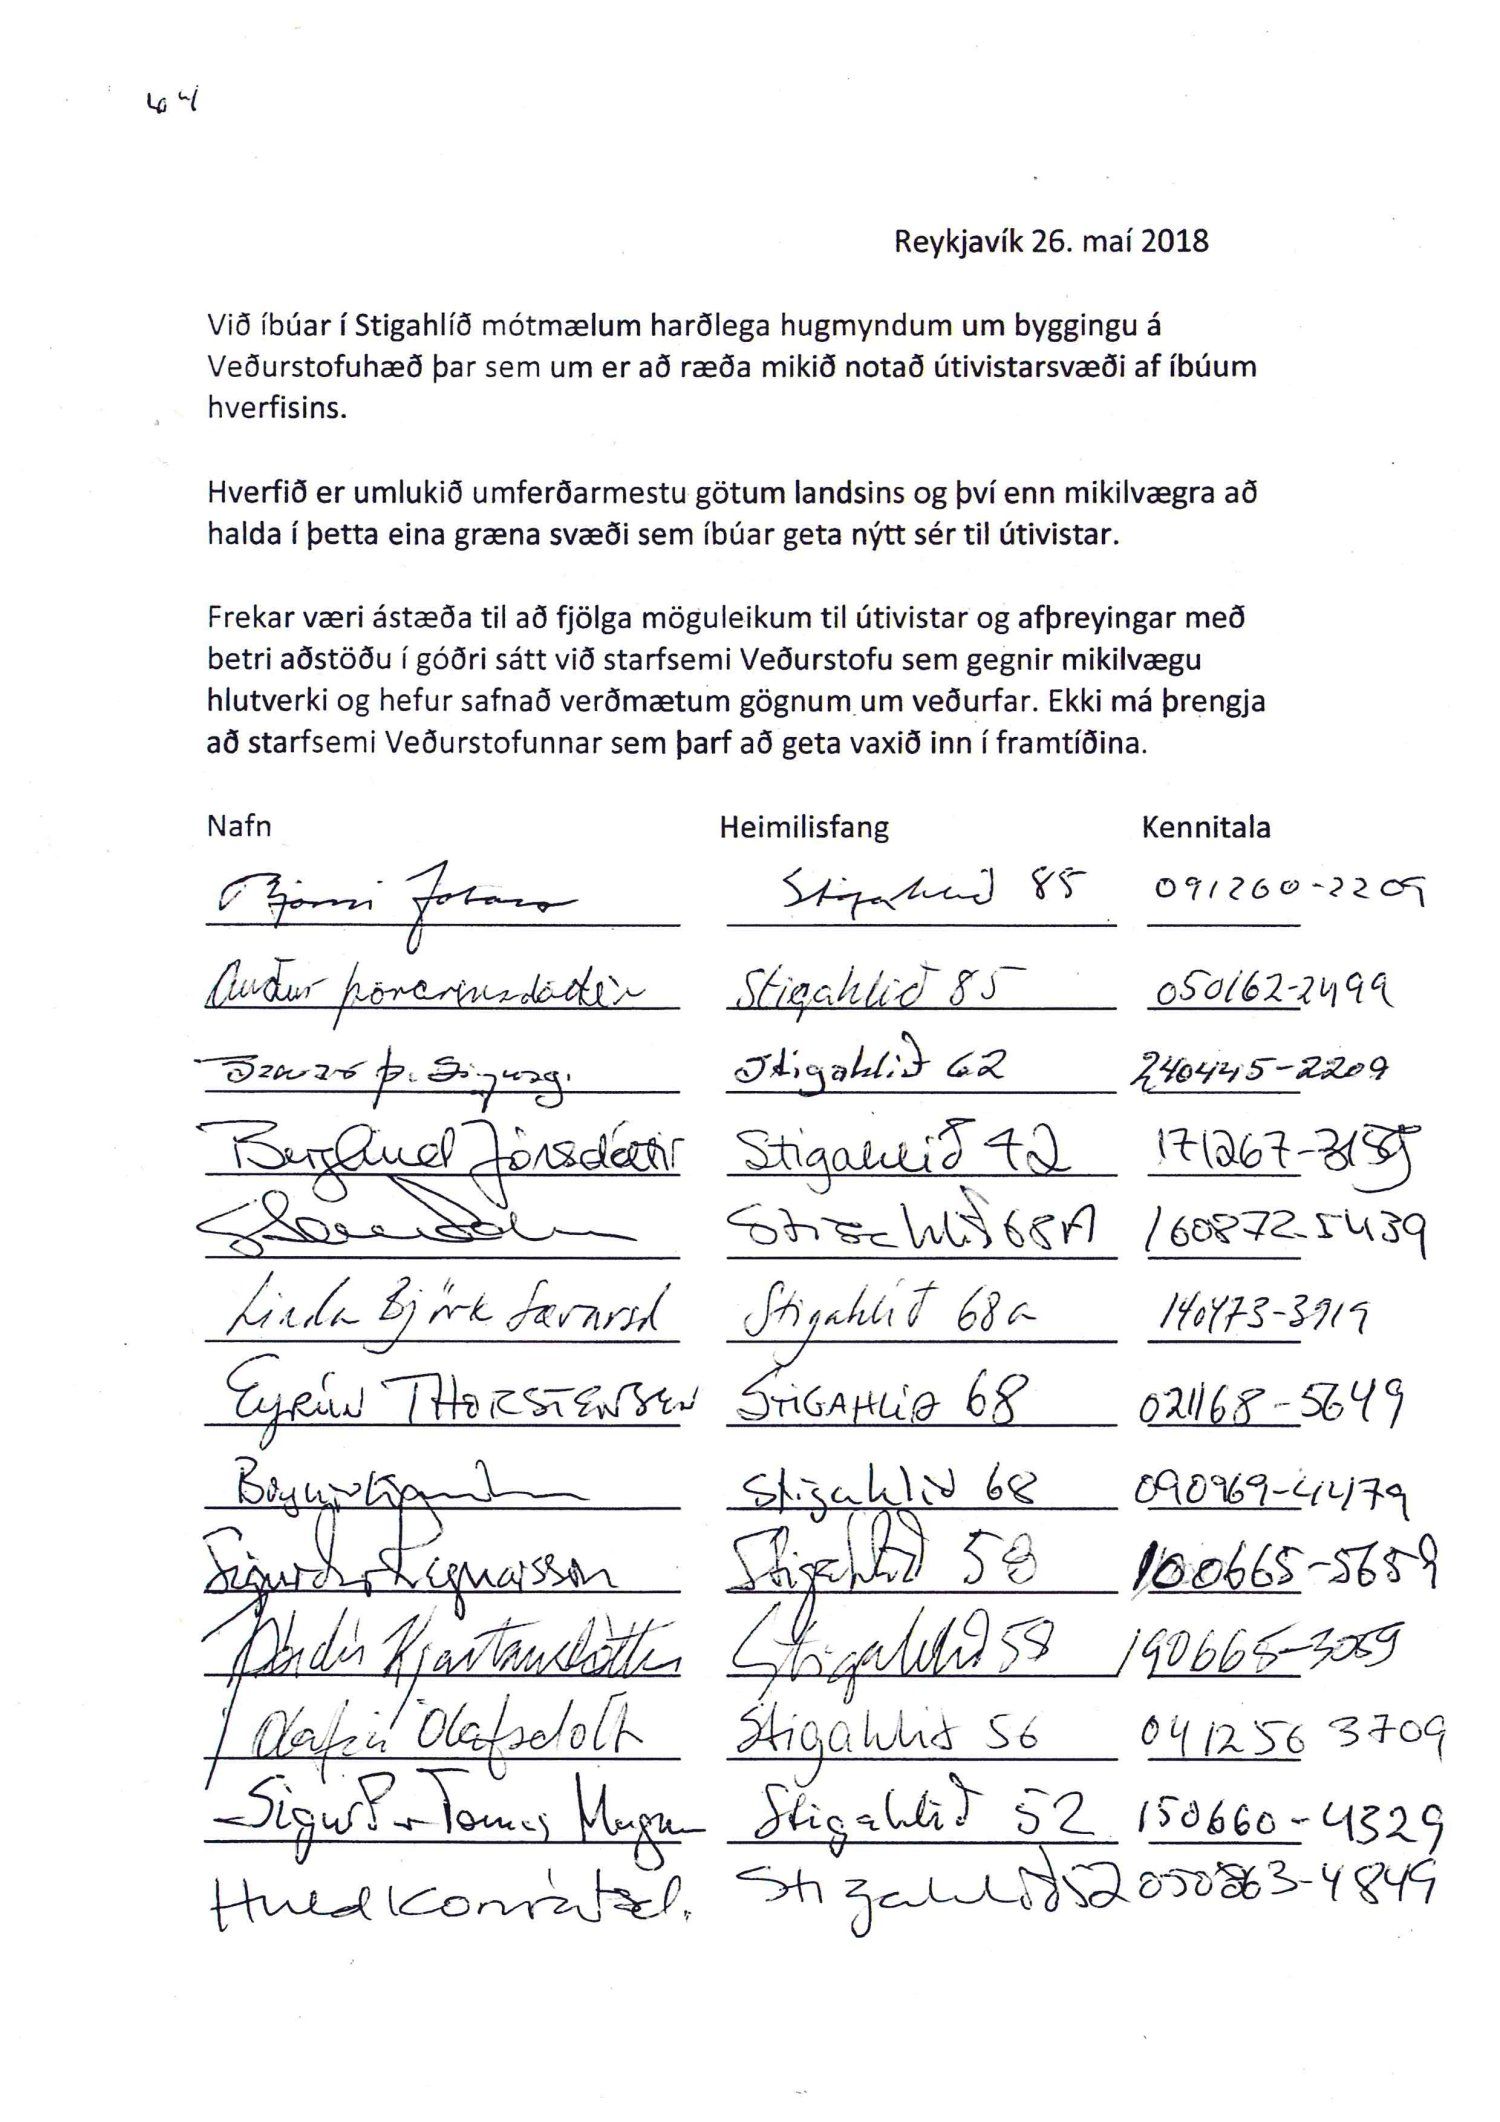 Reykjavík 26. maí 2018
Við íbúar í Stigahlíð mótmælum harðlega hugmyndum um byggingu á
Veðurstofuhæð þar sem um er að ræða mikið notað útivistarsvæði af íbúum
hverfisins.
Hverfið er umlukið umferðarmestu götum landsins og því enn mikilvægra að
halda í þetta eina græna svæði sem íbúar geta nýtt sér til útivistar.
Frekar væri ástæða til að fjölga möguleikum til útivistar og afþreyingar með
betri aðstöðu í góðri sátt við starfsemi Veðurstofu sem gegnir mikilvægu
hlutverki og hefur safnað verðmætum gögnum um veðurfar. Ekki má þrengja
að starfsemi Veðurstofunnar sem þarf að geta vaxið inn í framtíðina.
Nafn Heimilisfang Kennitala
Stigahlíð 85 091260-2209
Auður Þórarinsdóttir Stigahlíð 85 050162-2499
Stigahlið 62 240445-2209
Berglind Jónsdóttir Stigahlíð 42
Stigahlíð 68A 160872-5439
Linda Björk Sævarsd Stigahlíð 68a 140473-3919
Eyrún THORSTENSEN STIGAHLíð 68 021168-5649
Stigahlíð 68 090969-4479
Sigurður Ragnarsson Stigahlíð 58 100665-5659
Þórdís Kjartansdóttir Stigahlíð 58 190665-3059
Ólafía Ólafsdótt Stigahlíð 56 041256 3709
Sigurður Tómas Magn Stigahlíð 52 150660-4329
Huld Konráðsd. Stigahlíð 52